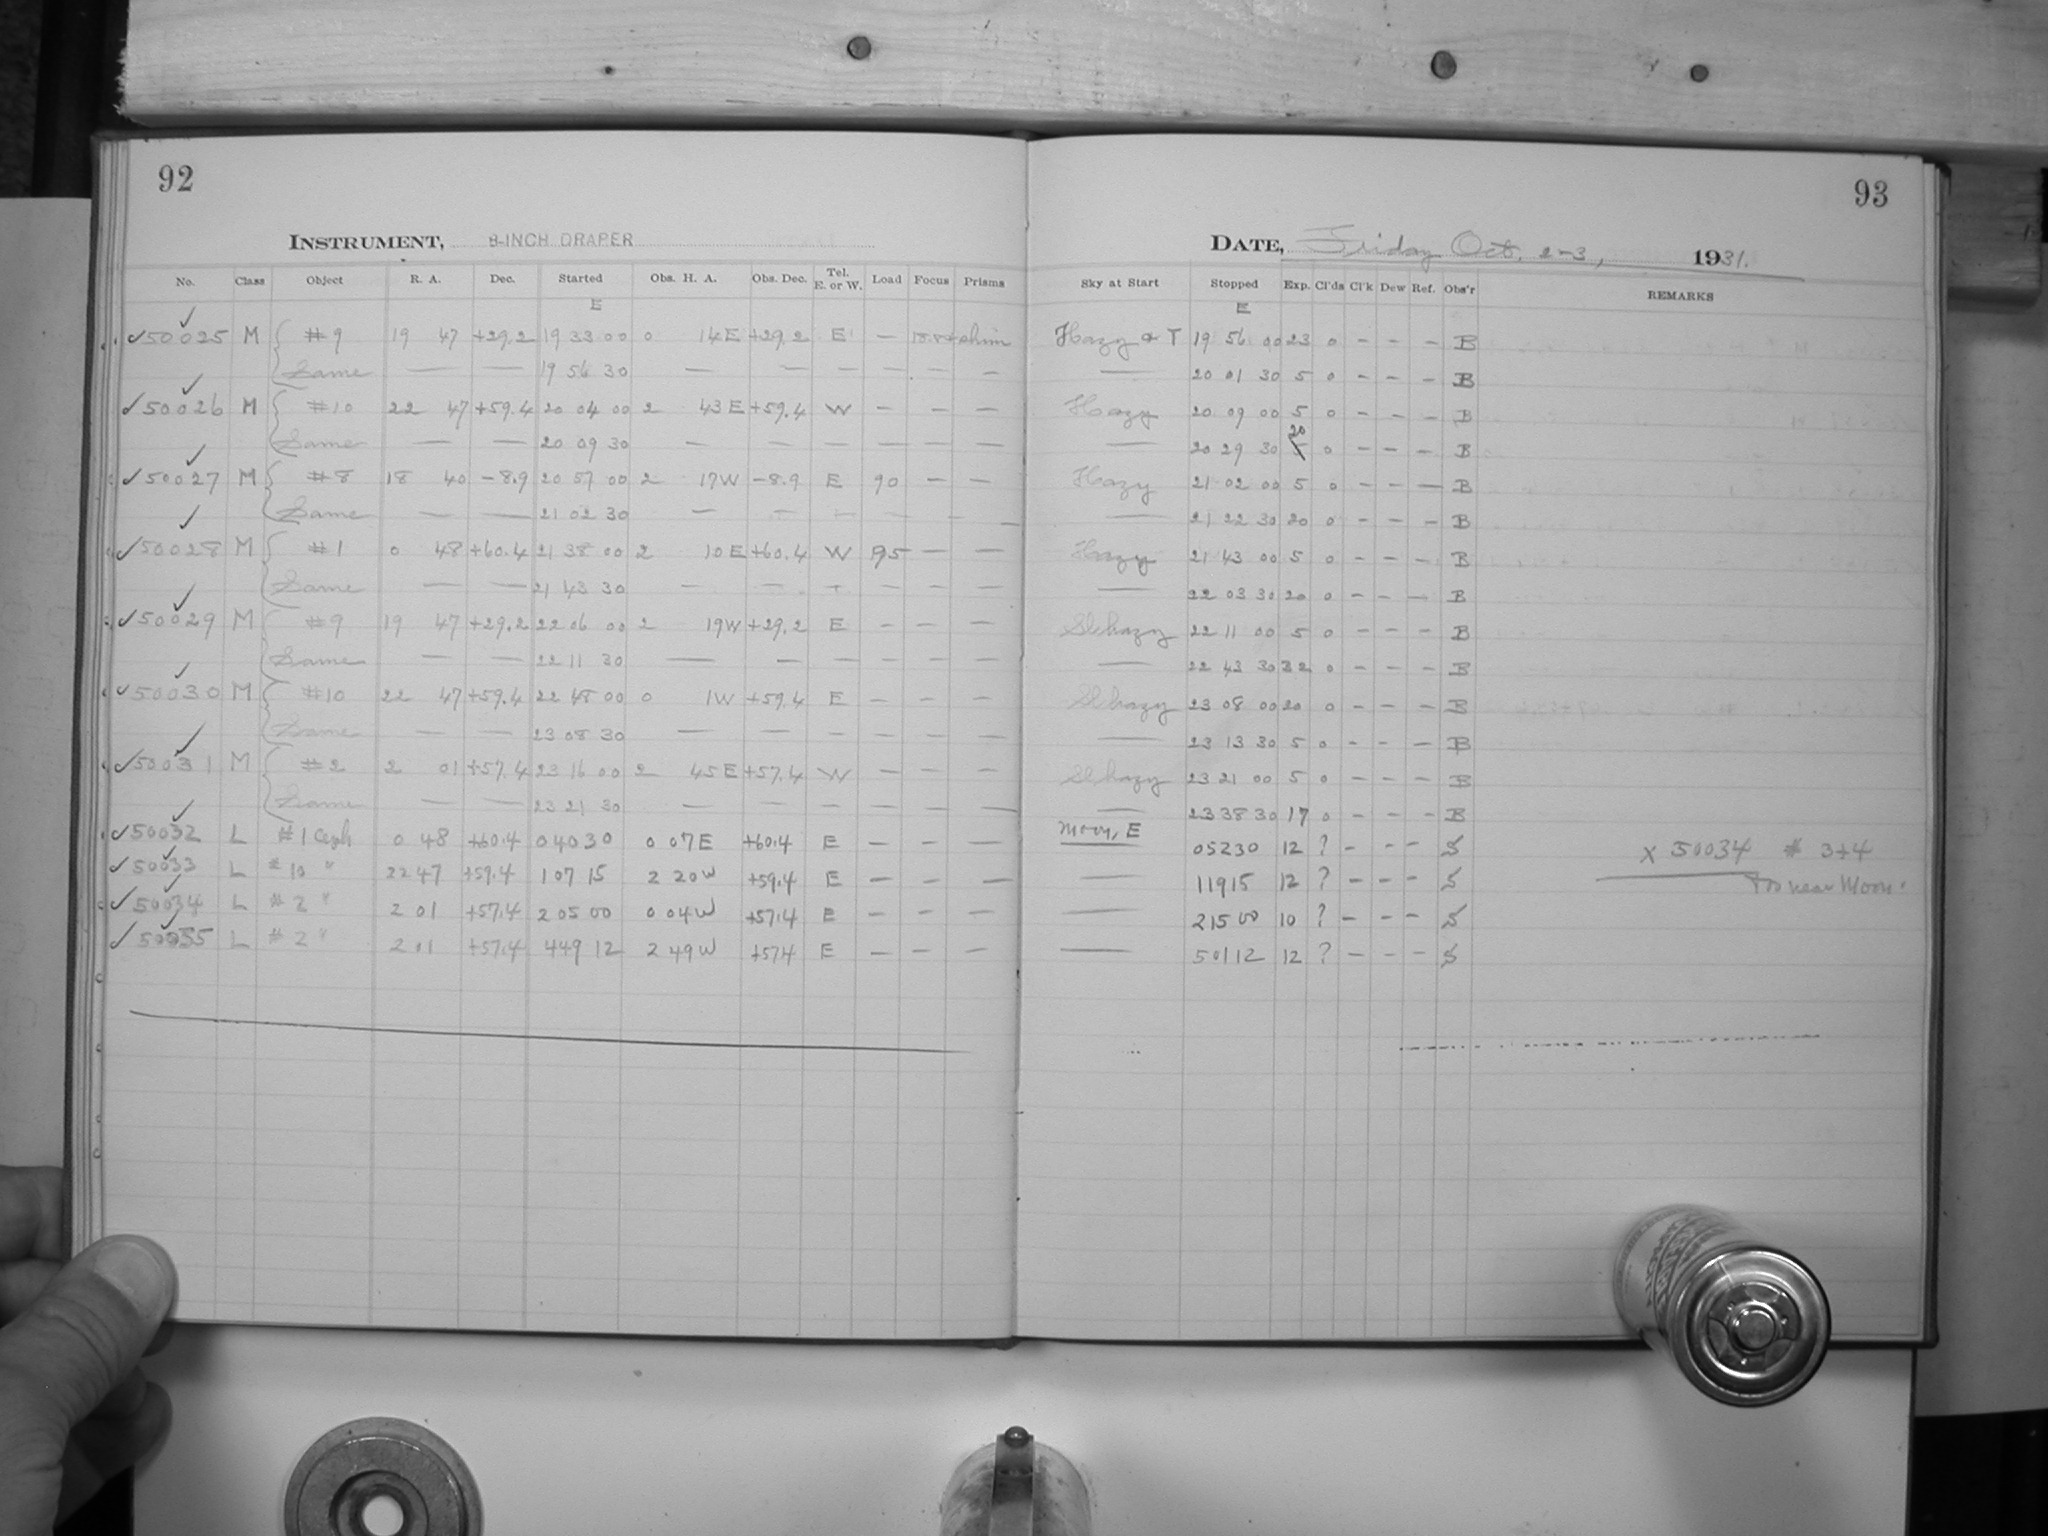 92
INSTRUMENT, 8-INCH DRAPER
No. Class Object R. A. Dec. Started Obs. H. A. Obs. Dec. Tel. E. or W. Load Focus Prisms
E
50025 M #9 19 47 +29.2 19 33 00 0 14E +29.2 E —
Same — — 19 56 30 — — — — — —
50026 M #10 22 47 +59.4 20 04 00 2 43E +59.4 W — — —
Same — — 20 09 30 — — — — — —
50027 M #8 18 40 -8.9 20 57 00 2 17W -8.9 E 90 — —
Same — — 21 02 30 — — — — — —
50028 M #1 0 48 +60.4 21 38 00 2 10E +60.4 W 95 — —
Same — — 21 43 30 — — — — — —
50029 M #9 19 47 +29.2 22 06 00 2 19W +29.2 E — — —
Same — — 22 11 30 — — — — — —
50030 M #10 22 47 +59.4 22 48 00 0 1W +59.4 E — — —
Same — — 23 08 30 — — — — — —
50031 M #2 2 01 +57.4 23 16 00 2 45E +57.4 W — — —
Same — — 23 21 30 — — — — — —
50032 L #1 Ceph 0 48 +60.4 0 40 30 0 07E +60.4 E — — —
50033 L #10 " 22 47 +59.4 1 07 15 2 20W +59.4 E — — —
50034 L #2 " 2 01 +57.4 2 05 00 0 04W +57.4 E — — —
50035 L #2 " 2 01 +57.4 4 49 12 2 49W +57.4 E — — —
93
DATE, Friday Oct. 2-3, 1931.
Sky at Start Stopped Exp. Cl'ds Cl'k Dew Ref. Obs'r REMARKS
E
Hazy & T 19 56 00 23 0 — — — B
— 20 01 30 5 0 — — — B
Hazy 20 09 00 5 0 — — — B
— 20 29 30 20 0 — — — B
Hazy 21 02 00 5 0 — — — B
— 21 22 30 20 0 — — — B
Hazy 21 43 00 5 0 — — — B
— 22 03 30 20 0 — — — B
Sl hazy 22 11 00 5 0 — — — B
— 22 43 30 32 0 — — — B
Sl hazy 23 08 00 20 0 — — — B
— 23 13 30 5 0 — — — B
Sl hazy 23 21 00 5 0 — — — B
— 23 38 30 17 0 — — — B
Moon, E 0 52 30 12 ? — — — S x 50034 # 3+4
— 1 19 15 12 ? — — — S too near Moon.
— 2 15 00 10 ? — — — S
— 5 01 12 12 ? — — — S